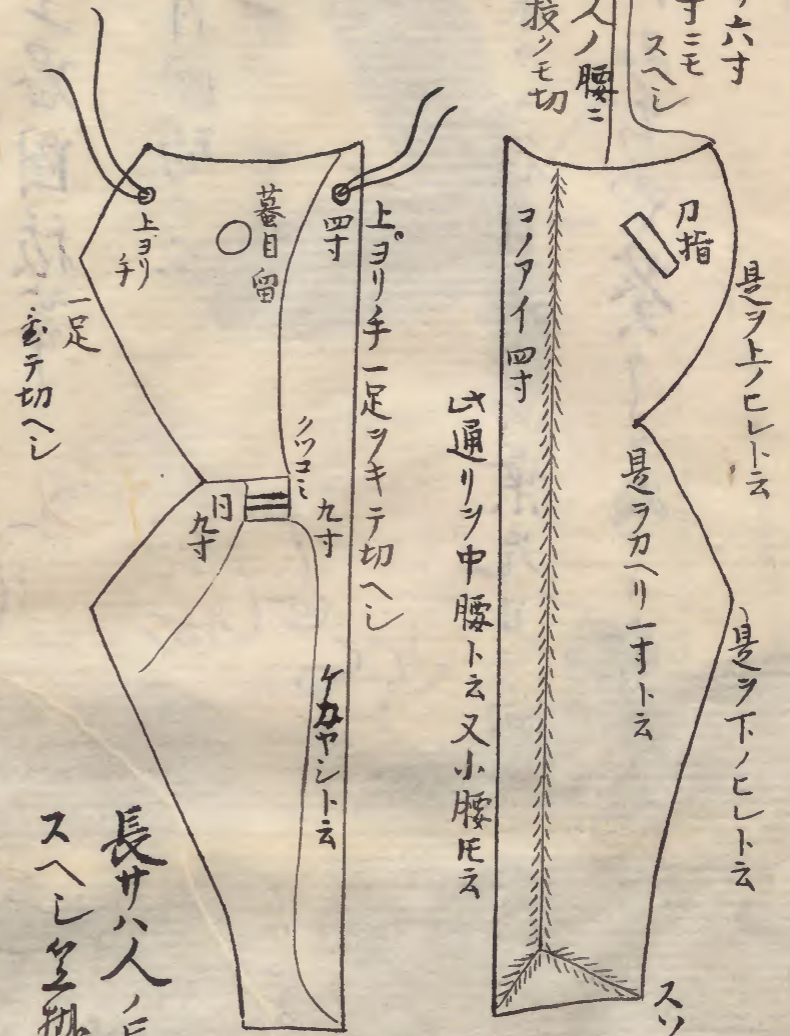 六寸
寸ニモ
スヘシ
人ノ腰ニ
切
刀指
是ヲ上ノヒレト云
コノアイ四寸
是ヲカヘリ一寸ト云
是ヲ下ノヒレト云
此通リヲ中腰ト云又小腰トモ云
スソ
四寸
上ヨリ手一足ツキテ切ヘシ
蟇目留
上ヨリ
手
一足
テ切ヘシ
クツコミ
九寸
同
九寸
ケカヤシト云
長サハ人ノ
スヘシ笠掛